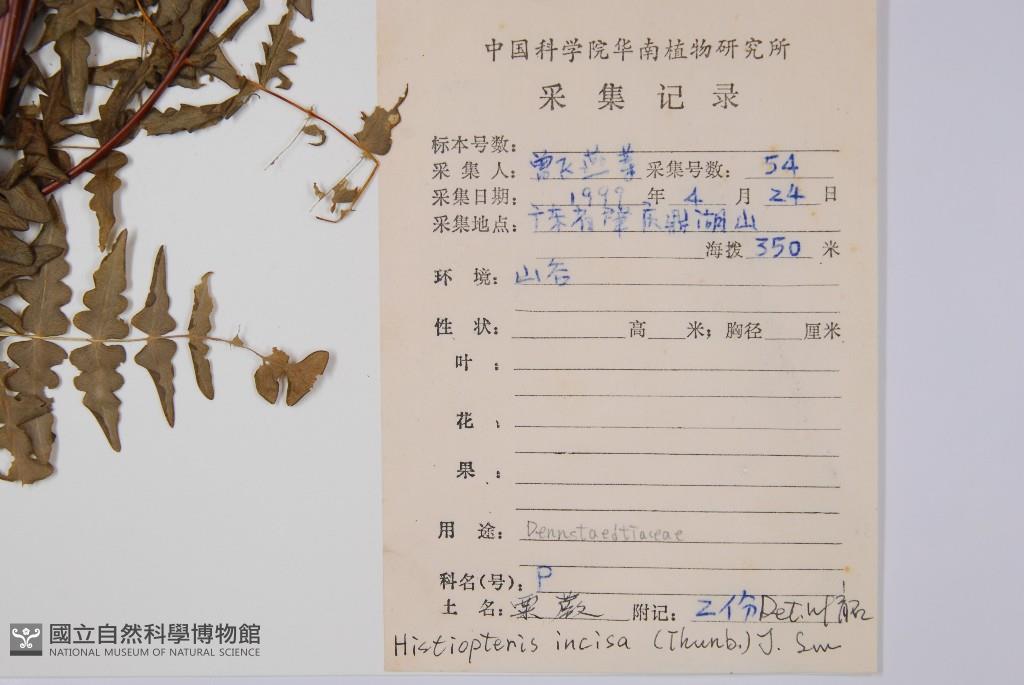 中国科学院华南植物研究所
采集记录
标本号数：
采集人：曾飞燕等 采集号数：54
采集日期：1999年4月24日
采集地点：广东省肇庆鼎湖山
海拨350米
环境：山谷
性状：高米；胸径厘米
叶：
花、
果：
用途：Dennstaedtiaceae
科名(号)：P
土名：栗蕨 附记：2份 Det.
Histiopteris incisa (Thunb.) J. Sm
國立自然科學博物館
NATIONAL MUSEUM OF NATURAL SCIENCE